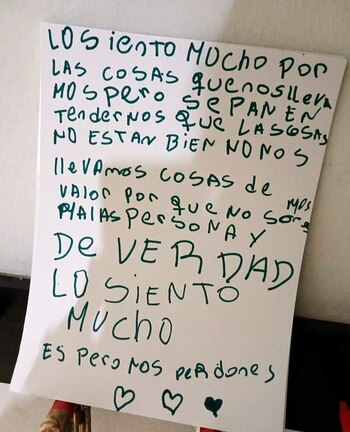 LO Siento MUCHO POR
LAS COSAS quenoslleva
MOS pero SEPAN EN
tendernos que LASCOSAS
NO ESTAN BIEN NO NOS
llevAmos COSAS de
VALOR POR que NO somos
MALAS PERSONA Y
De VERDAD
LO SIENTO
MUCHO
Es pero nos peRdones